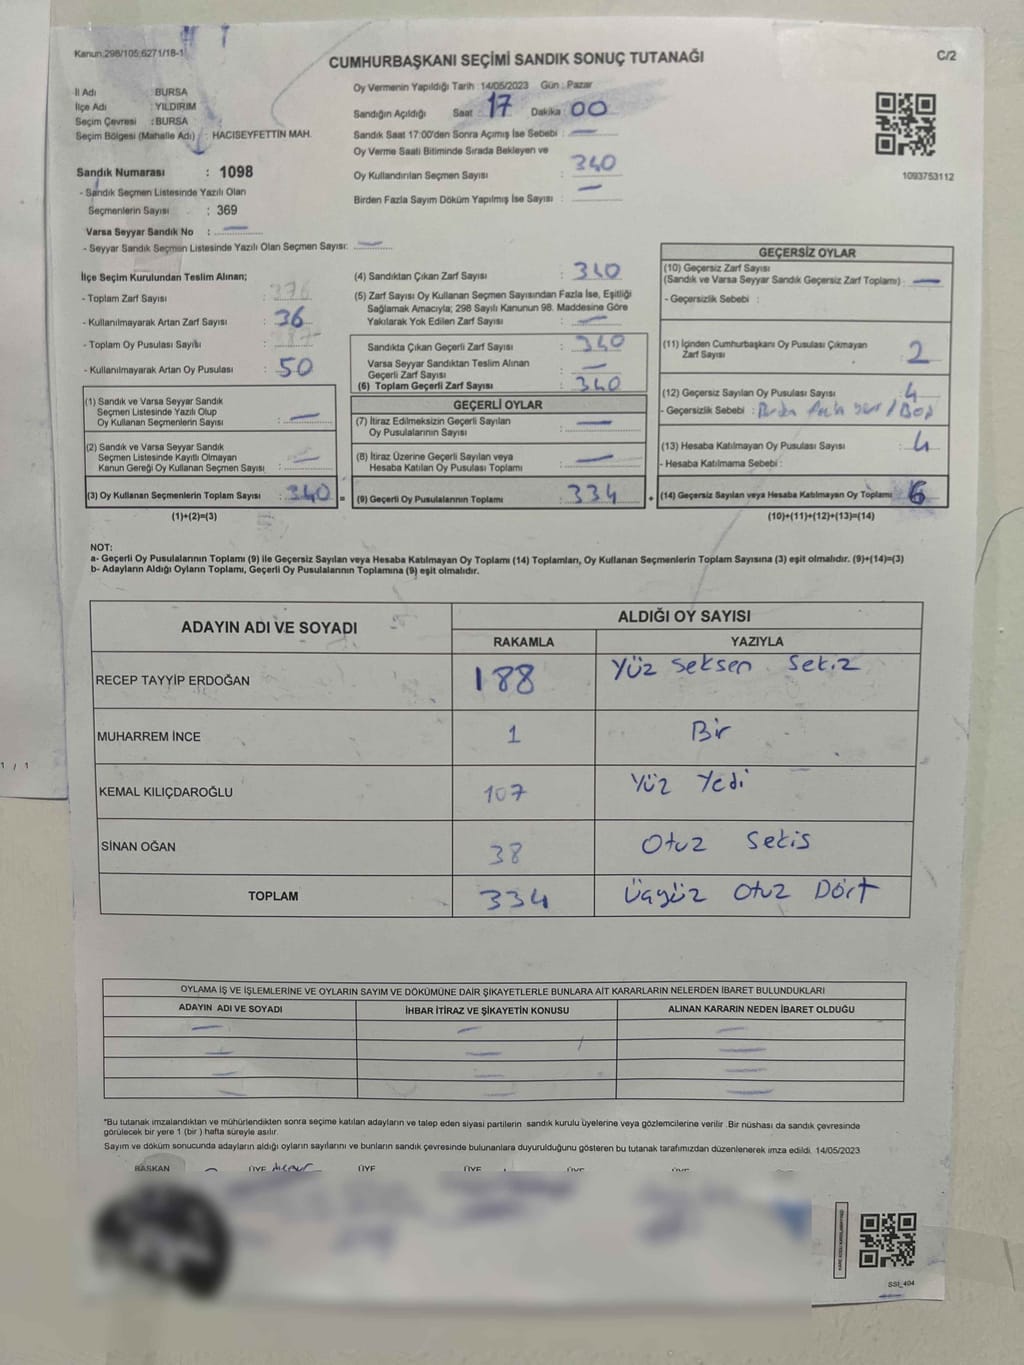 Kanun:298/105;6271/18-1
CUMHURBAŞKANI SEÇİMİ SANDIK SONUÇ TUTANAĞI
C/2
İl Adı : BURSA
İlçe Adı : YILDIRIM
Seçim Çevresi : BURSA
Seçim Bölgesi (Mahalle Adı) : HACISEYFETTİN MAH.
Sandık Numarası : 1098
- Sandık Seçmen Listesinde Yazılı Olan
Seçmenlerin Sayısı : 369
Varsa Seyyar Sandık No : —
- Seyyar Sandık Seçmen Listesinde Yazılı Olan Seçmen Sayısı: —
Oy Vermenin Yapıldığı Tarih : 14/05/2023 Gün : Pazar
Sandığın Açıldığı Saat : 17 Dakika : 00
Sandık Saat 17:00'den Sonra Açımış İse Sebebi : —
Oy Verme Saati Bitiminde Sırada Bekleyen ve
Oy Kullandırılan Seçmen Sayısı : 340
Birden Fazla Sayım Döküm Yapılmış İse Sayısı : —
1093753112
İlçe Seçim Kurulundan Teslim Alınan;
- Toplam Zarf Sayısı : 376
- Kullanılmayarak Artan Zarf Sayısı : 36
- Toplam Oy Pusulası Sayısı :
- Kullanılmayarak Artan Oy Pusulası : 50
(1) Sandık ve Varsa Seyyar Sandık
Seçmen Listesinde Yazılı Olup
Oy Kullanan Seçmenlerin Sayısı : —
(2) Sandık ve Varsa Seyyar Sandık
Seçmen Listesinde Kayıtlı Olmayan
Kanun Gereği Oy Kullanan Seçmen Sayısı : —
(3) Oy Kullanan Seçmenlerin Toplam Sayısı : 340 =
(1)+(2)=(3)
(4) Sandıktan Çıkan Zarf Sayısı : 340
(5) Zarf Sayısı Oy Kullanan Seçmen Sayısından Fazla İse, Eşitliği
Sağlamak Amacıyla; 298 Sayılı Kanunun 98. Maddesine Göre
Yakılarak Yok Edilen Zarf Sayısı : —
Sandıkta Çıkan Geçerli Zarf Sayısı : 340
Varsa Seyyar Sandıktan Teslim Alınan
Geçerli Zarf Sayısı : —
(6) Toplam Geçerli Zarf Sayısı : 340
GEÇERLİ OYLAR
(7) İtiraz Edilmeksizin Geçerli Sayılan
Oy Pusulalarının Sayısı : —
(8) İtiraz Üzerine Geçerli Sayılan veya
Hesaba Katılan Oy Pusulası Toplamı : —
(9) Geçerli Oy Pusulalarının Toplamı : 334 +
GEÇERSİZ OYLAR
(10) Geçersiz Zarf Sayısı
(Sandık ve Varsa Seyyar Sandık Geçersiz Zarf Toplamı) : —
- Geçersizlik Sebebi :
(11) İçinden Cumhurbaşkanı Oy Pusulası Çıkmayan
Zarf Sayısı : 2
(12) Geçersiz Sayılan Oy Pusulası Sayısı : 4
- Geçersizlik Sebebi :
(13) Hesaba Katılmayan Oy Pusulası Sayısı : 4
- Hesaba Katılmama Sebebi :
(14) Geçersiz Sayılan veya Hesaba Katılmayan Oy Toplamı : 6
(10)+(11)+(12)+(13)=(14)
NOT:
a- Geçerli Oy Pusulalarının Toplamı (9) ile Geçersiz Sayılan veya Hesaba Katılmayan Oy Toplamı (14) Toplamları, Oy Kullanan Seçmenlerin Toplam Sayısına (3) eşit olmalıdır. (9)+(14)=(3)
b- Adayların Aldığı Oyların Toplamı, Geçerli Oy Pusulalarının Toplamına (9) eşit olmalıdır.
ADAYIN ADI VE SOYADI ALDIĞI OY SAYISI
RAKAMLA YAZIYLA
RECEP TAYYİP ERDOĞAN 188 Yüz seksen sekiz
MUHARREM İNCE 1 Bir
KEMAL KILIÇDAROĞLU 107 Yüz Yedi
SİNAN OĞAN 38 Otuz Sekis
TOPLAM 334 Üçyüz Otuz Dört
OYLAMA İŞ VE İŞLEMLERİNE VE OYLARIN SAYIM VE DÖKÜMÜNE DAİR ŞİKAYETLERLE BUNLARA AİT KARARLARIN NELERDEN İBARET BULUNDUKLARI
ADAYIN ADI VE SOYADI İHBAR İTİRAZ VE ŞİKAYETİN KONUSU ALINAN KARARIN NEDEN İBARET OLDUĞU
— — —
— — —
— — —
— — —
*Bu tutanak imzalandıktan ve mühürlendikten sonra seçime katılan adayların ve talep eden siyasi partilerin sandık kurulu üyelerine veya gözlemcilerine verilir .Bir nüshası da sandık çevresinde
görülecek bir yere 1 (bir ) hafta süreyle asılır.
Sayım ve döküm sonucunda adayların aldığı oyların sayılarını ve bunların sandık çevresinde bulunanlara duyurulduğunu gösteren bu tutanak tarafımızdan düzenlenerek imza edildi. 14/05/2023
BAŞKAN ÜYE ÜYE ÜYE ÜYE ÜYE
SSI_494
1 / 1